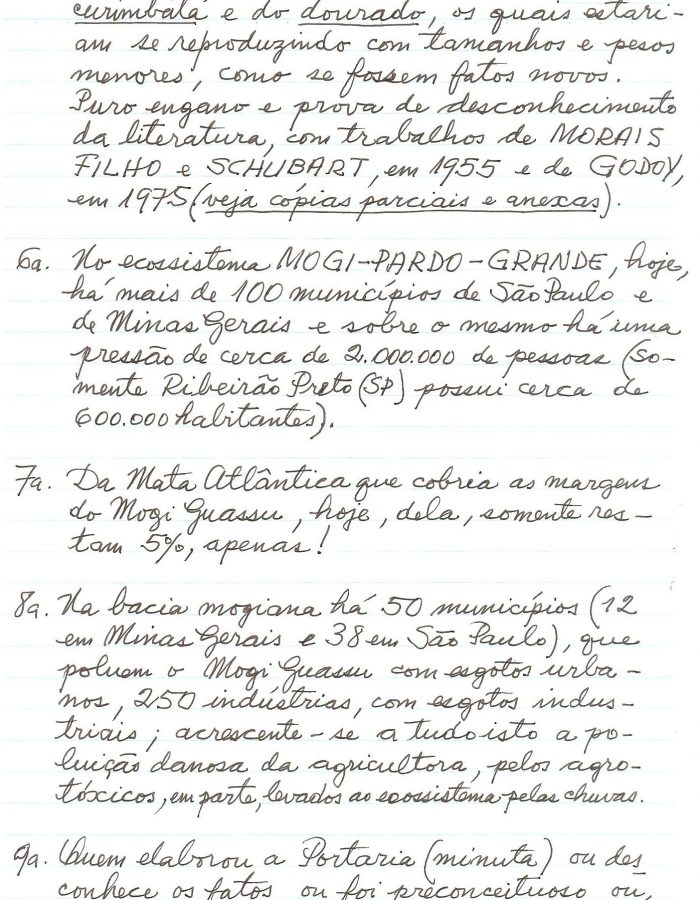 curimbatá e do dourado, os quais estari-
am se reproduzindo com tamanhos e pesos
menores, como se fossem fatos novos.
Puro engano e prova de desconhecimento
da literatura, com trabalhos de MORAIS
FILHO e SCHUBART, em 1955 e de GODOY,
em 1975 (veja cópias parciais e anexas).
6a. No ecossistema MOGI-PARDO-GRANDE, hoje,
há mais de 100 municípios de São Paulo e
de Minas Gerais e sobre o mesmo há uma
pressão de cerca de 2.000.000 de pessoas (so-
mente Ribeirão Preto (SP) possui cerca de
600.000 habitantes).
7a. Da Mata Atlântica que cobria as margens
do Mogi Guassu, hoje, dela, somente res-
tam 5%, apenas!
8a. Na bacia mogiana há 50 municípios (12
em Minas Gerais e 38 em São Paulo), que
poluem o Mogi Guassu com esgotos urba-
nos, 250 indústrias, com esgotos indus-
triais; acrescente-se a tudo isto a po-
luição danosa da agricultora, pelos agro-
tóxicos, em parte, levados ao ecossistema pelas chuvas.
9a. Quem elaborou a Portaria (minuta) ou des
conhece os fatos ou foi preconceituoso ou,